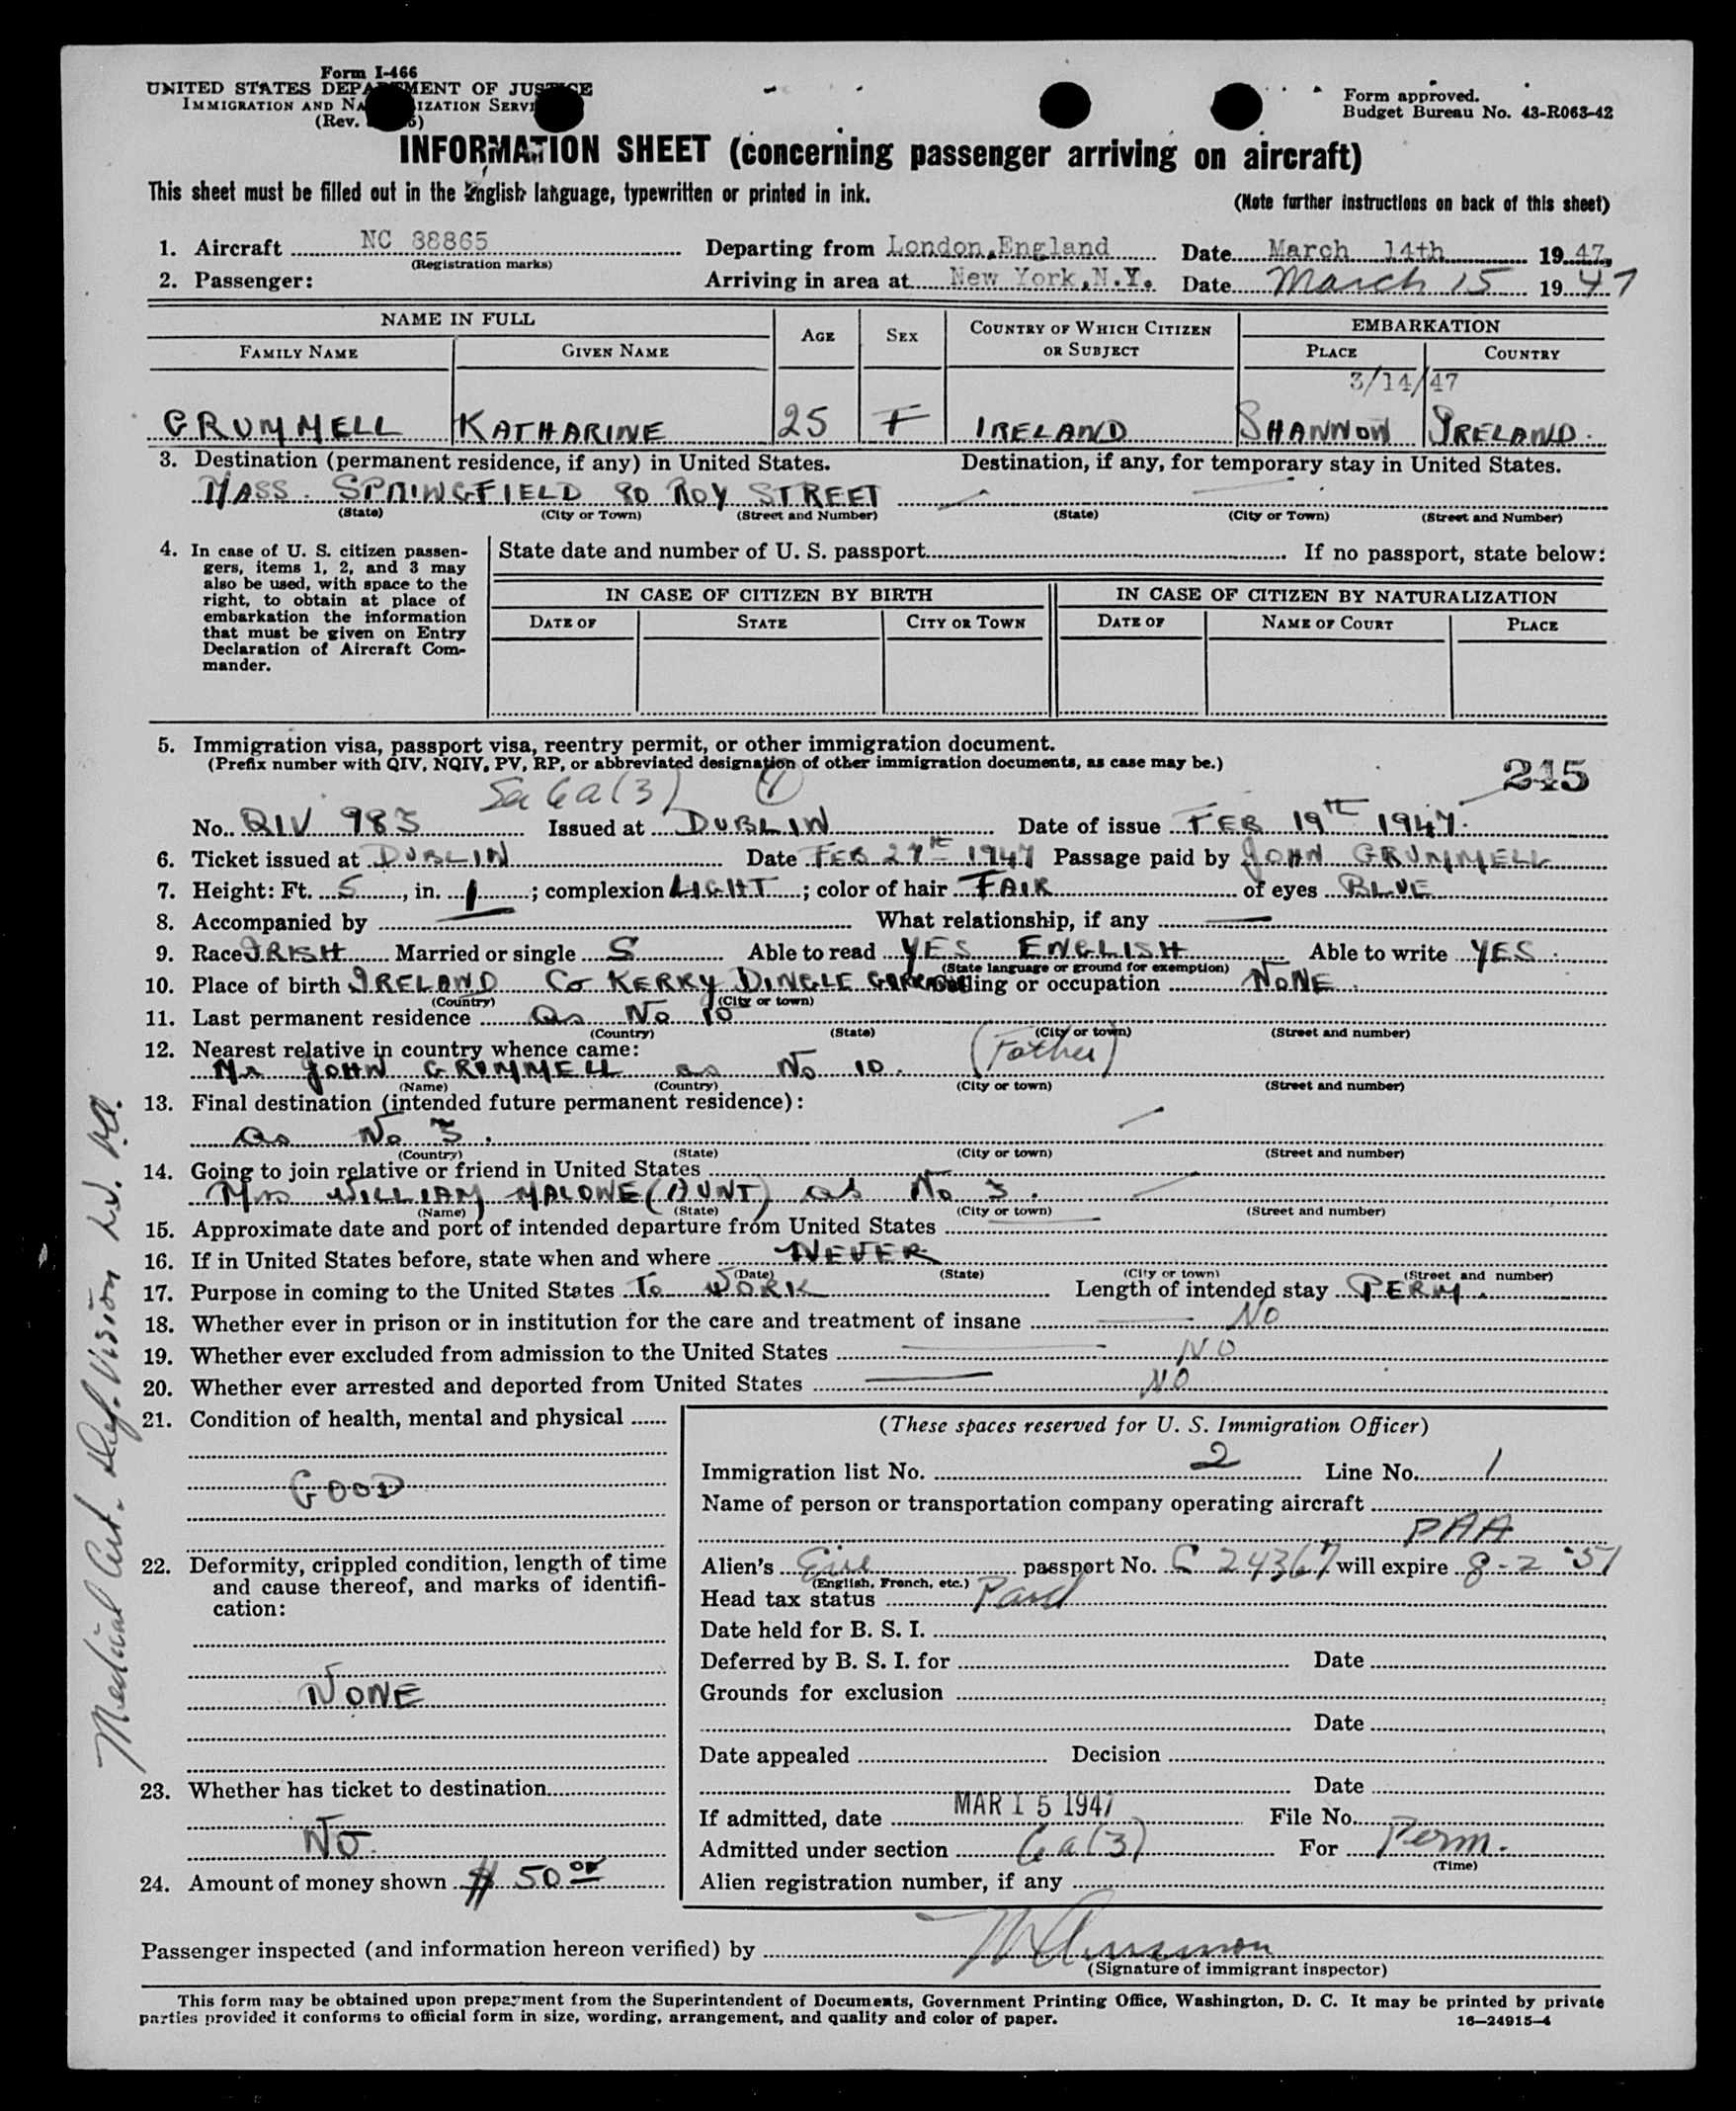 Form I-466
UNITED STATES DEPARTMENT OF JUSTICE
IMMIGRATION AND NATURALIZATION SERVICE
(Rev.
Form approved.
Budget Bureau No. 43-R063-42
INFORMATION SHEET (concerning passenger arriving on aircraft)
This sheet must be filled out in the English language, typewritten or printed in ink.
(Note further instructions on back of this sheet)
1. Aircraft NC 88865 Departing from London, England Date March 14th 1947,
(Registration marks)
2. Passenger: Arriving in area at New York, N.Y. Date March 15 1947
NAME IN FULL AGE SEX COUNTRY OF WHICH CITIZEN OR SUBJECT EMBARKATION
FAMILY NAME GIVEN NAME PLACE COUNTRY
3/14/47
GRUMMELL KATHARINE 25 F IRELAND SHANNON IRELAND.
3. Destination (permanent residence, if any) in United States. Destination, if any, for temporary stay in United States.
MASS. SPRINGFIELD 80 ROY STREET
(State) (City or Town) (Street and Number) (State) (City or Town) (Street and Number)
4. In case of U. S. citizen passen-
gers, items 1, 2, and 3 may
also be used, with space to the
right, to obtain at place of
embarkation the information
that must be given on Entry
Declaration of Aircraft Com-
mander.
State date and number of U. S. passport If no passport, state below:
IN CASE OF CITIZEN BY BIRTH IN CASE OF CITIZEN BY NATURALIZATION
DATE OF STATE CITY OR TOWN DATE OF NAME OF COURT PLACE
5. Immigration visa, passport visa, reentry permit, or other immigration document.
(Prefix number with QIV, NQIV, PV, RP, or abbreviated designation of other immigration documents, as case may be.)
245
6a(3)
No. QIV 983 Issued at DUBLIN Date of issue FEB 19TH 1947.
6. Ticket issued at DUBLIN Date FEB 27TH 1947 Passage paid by JOHN GRUMMELL
7. Height: Ft. 5, in. 1; complexion LIGHT; color of hair FAIR of eyes BLUE
8. Accompanied by — What relationship, if any —
9. Race IRISH Married or single S Able to read YES ENGLISH Able to write YES.
(State language or ground for exemption)
10. Place of birth IRELAND Co KERRY DINGLE Calling or occupation NONE.
(Country) (City or town)
11. Last permanent residence as No 10
(Country) (State) (City or town) (Street and number)
12. Nearest relative in country whence came: (Father)
Mr JOHN GRUMMELL as No 10.
(Name) (Country) (City or town) (Street and number)
13. Final destination (intended future permanent residence):
as No 3.
(Country) (State) (City or town) (Street and number)
14. Going to join relative or friend in United States
Mrs WILLIAM MALONE (AUNT) as No 3.
(Name) (State) (City or town) (Street and number)
15. Approximate date and port of intended departure from United States
16. If in United States before, state when and where NEVER
(Date) (State) (City or town) (Street and number)
17. Purpose in coming to the United States To WORK Length of intended stay PERM.
18. Whether ever in prison or in institution for the care and treatment of insane NO
19. Whether ever excluded from admission to the United States NO
20. Whether ever arrested and deported from United States NO
21. Condition of health, mental and physical
GOOD
22. Deformity, crippled condition, length of time
and cause thereof, and marks of identifi-
cation:
NONE
23. Whether has ticket to destination
NO.
24. Amount of money shown $ 50 00
(These spaces reserved for U. S. Immigration Officer)
Immigration list No. 2 Line No. 1
Name of person or transportation company operating aircraft
PAA
Alien's Eire passport No. C 24367 will expire 8-2-'51
(English, French, etc.)
Head tax status Paid
Date held for B. S. I.
Deferred by B. S. I. for Date
Grounds for exclusion
Date
Date appealed Decision
Date
If admitted, date MAR 15 1947 File No.
Admitted under section 6a(3) For Perm.
(Time)
Alien registration number, if any
Passenger inspected (and information hereon verified) by
(Signature of immigrant inspector)
This form may be obtained upon prepayment from the Superintendent of Documents, Government Printing Office, Washington, D. C. It may be printed by private
parties provided it conforms to official form in size, wording, arrangement, and quality and color of paper.
16—24915-4
Medical Cert. Def. Vision